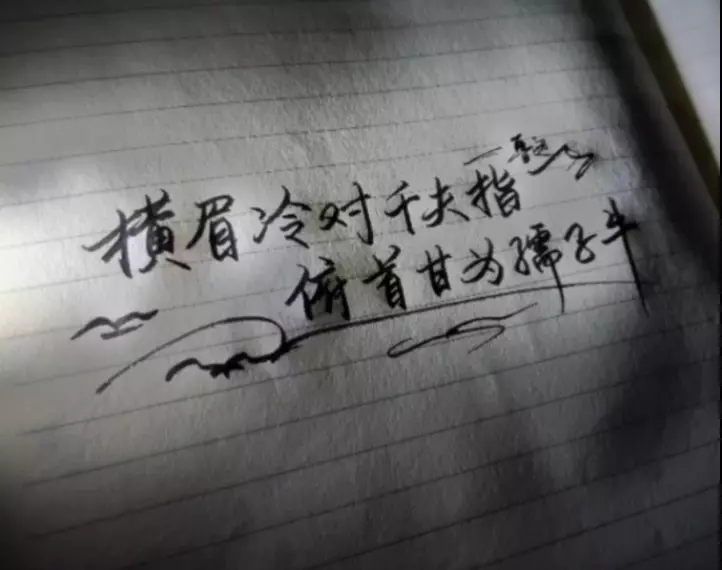 横眉冷对千夫指
俯首甘为孺子牛